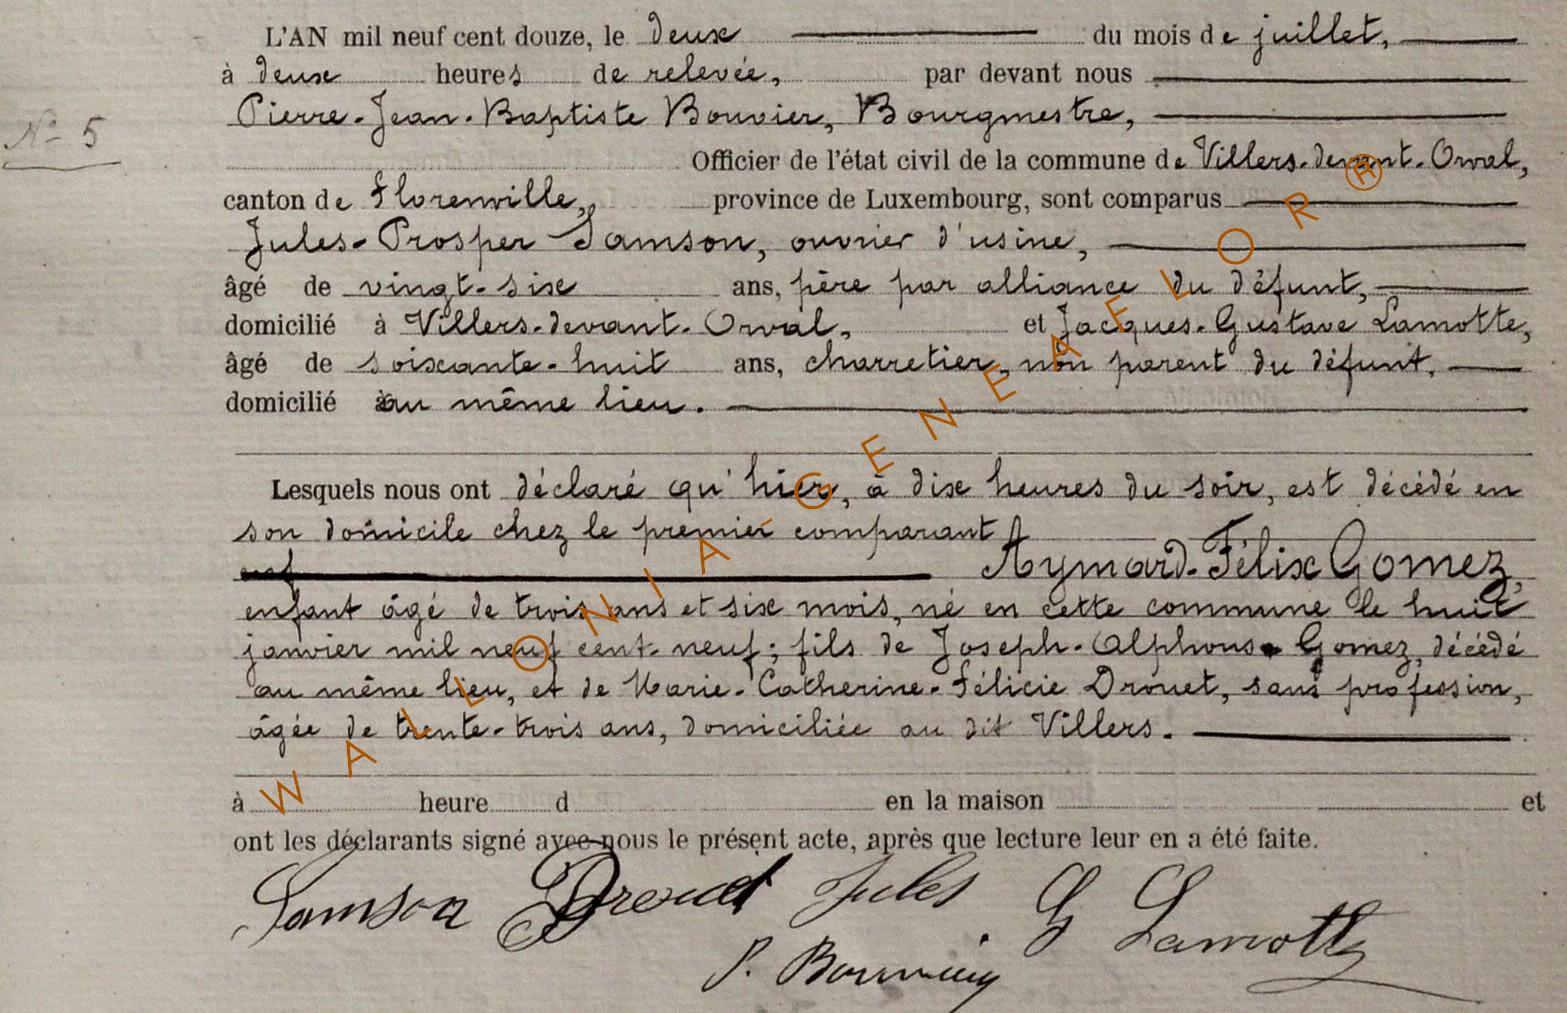 L'AN mil neuf cent douze, le deux du mois de juillet,
à deux heures de relevée, par devant nous
Pierre-Jean-Baptiste Bouvier, Bourgmestre,
N° 5
Officier de l'état civil de la commune de Villers-devant-Orval,
canton de Florenville, province de Luxembourg, sont comparus
Jules-Prosper Samson, ouvrier d'usine,
âgé de vingt-six ans, père par alliance du défunt,
domicilié à Villers-devant-Orval, et Jacques-Gustave Lamotte,
âgé de soixante-huit ans, charretier, non parent du défunt,
domicilié au même lieu.
Lesquels nous ont déclaré qu'hier, à dix heures du soir, est décédé en
son domicile chez le premier comparant
enf Aymard-Félix Gomez,
enfant âgé de trois ans et six mois, né en cette commune le huit
janvier mil neuf cent-neuf; fils de Joseph-Alphonse Gomez, décédé
au même lieu, et de Marie-Catherine-Félicie Drouet, sans profession,
âgée de trente-trois ans, domiciliée au dit Villers.
à heure d en la maison et
ont les déclarants signé avec nous le présent acte, après que lecture leur en a été faite.
Samson Drouet Jules G Lamotte
P. Bouvier
WALLONIA-GENEAELOR®